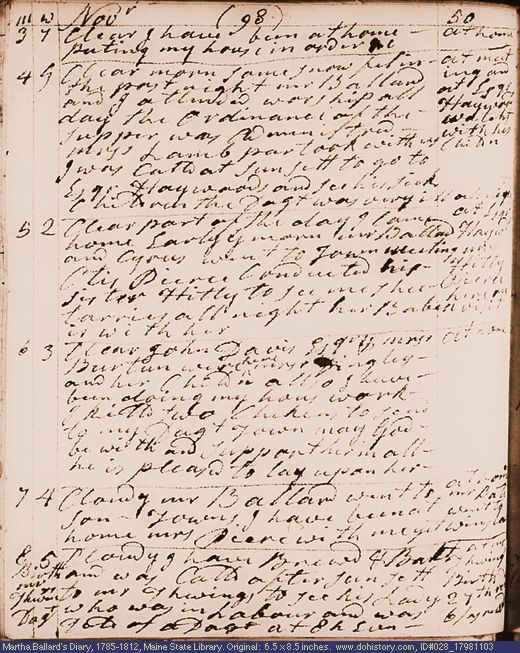 m w Novr (98) 50
3 7 Clear I have been at home at home
puting my hous in order &c
4 G Clear morn some snow fel in at meet
the past night mr Ballard ing and
and I attended worship all at Esqr
day the Ordinance of the Haywoods
supper was Administred
miss Lamb partook with us with his
I was Calld at sunsett to go to Childn
Esqr Haywoods and see his sick
Children the Dagt was very ill
5 2 Clear part of the day I came
home Early morn mr Ballard
and Cyrus went to Town meeting
Peirce Conducted his
sister Hitty to see me shee
tarries all night her Babe
is with her
6 3 Clear John Davis Esqr mrs at home
Burtun
and her Childn allso I have
been doing my hous work
I killd two Chickens to send
to my Dagt Town may God
be with and support her in all
he is pleased to lay upon her
7 4 Cloudy mr Ballard went to at home
son Towns I have been at mr Bal
home mrs Peirce with me
8 5 Cloudy I have Brewed & Bakt
Birth and was Calld after sun sett
mr to mr Thwings to see his Lady Birth
Thwings who was in Labour and was 27th
Dagt Safe of a Dagt at 8 h Evn
Martha Ballard's Diary, 1785-1812, Maine State Library. Original: 6.5 x 8.5 inches. www.dohistory.com, ID#028_17981103